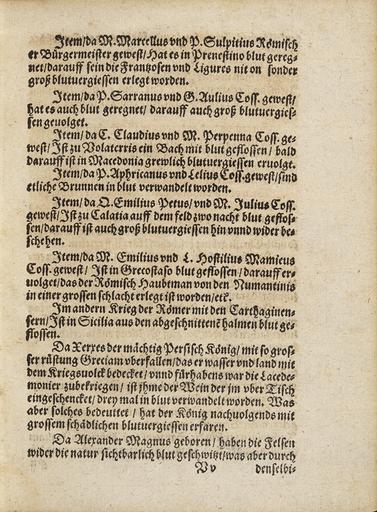 Item/da M. Marcellus vnd P. Sulpitius Römisch
er Bürgermeister gewest/Hat es in Prenestino blut gereg-
net/darauff sein die Frantzosen vnd Ligures nit on sonder
groß blutuergiessen erlegt worden.
Item/da P. Sarranus vnd G. Aulius Coss. gewest/
hat es auch blut geregnet/ darauff auch groß blutuergies-
sen geuolget.
Item/da C. Claudius vnd M. Perpenna Coss. ge-
west/Ist zu Volaterris ein Bach mit blut geflossen/ bald
darauff ist in Macedonia grewlich blutuergiessen eruolgt.
Item/da P. Aphricanus vnd Lelius Coss. gewest/sind
etliche Brunnen in blut verwandelt worden.
Item/da Q. Emilius Petus/vnd M. Julius Coss.
gewest/Ist zu Calatia auff dem feld zwo nacht blut geflos-
sen/darauff ist auch groß blutuergiessen hin vnnd wider be-
schehen.
Item/da M. Emilius vnd L. Hostilius Mamicus
Coss. gewest/ Ist in Grecostaso blut geflossen/ darauff er-
uolget/das der Römisch Haubtman von den Numantinis
in einer grossen schlacht erlegt ist worden/etc̃.
Im andern Krieg der Römer mit den Carthaginen-
sern/Ist in Sicilia aus den abgeschnittenẽ halmen blut ge-
flossen.
Da Xerxes der mächtig Persisch König/ mit so gros-
ser rüstung Greciam vberfallen/das er wasser vnd land mit
dem Kriegsuolck bedecket/vnnd fürhabens war die Lacede-
monier zubekriegen/ ist jhme der Wein der jm vber Tisch
eingeschencket/drey mal in blut verwandelt worden. Was
aber solches bedeuttet / hat der König nachuolgends mit
grossem schädlichen blutuergiessen erfaren.
Da Alexander Magnus geboren/ haben die Felsen
wider die natur sichtbarlich blut geschwitzt/was aber durch
Vv denselbi-